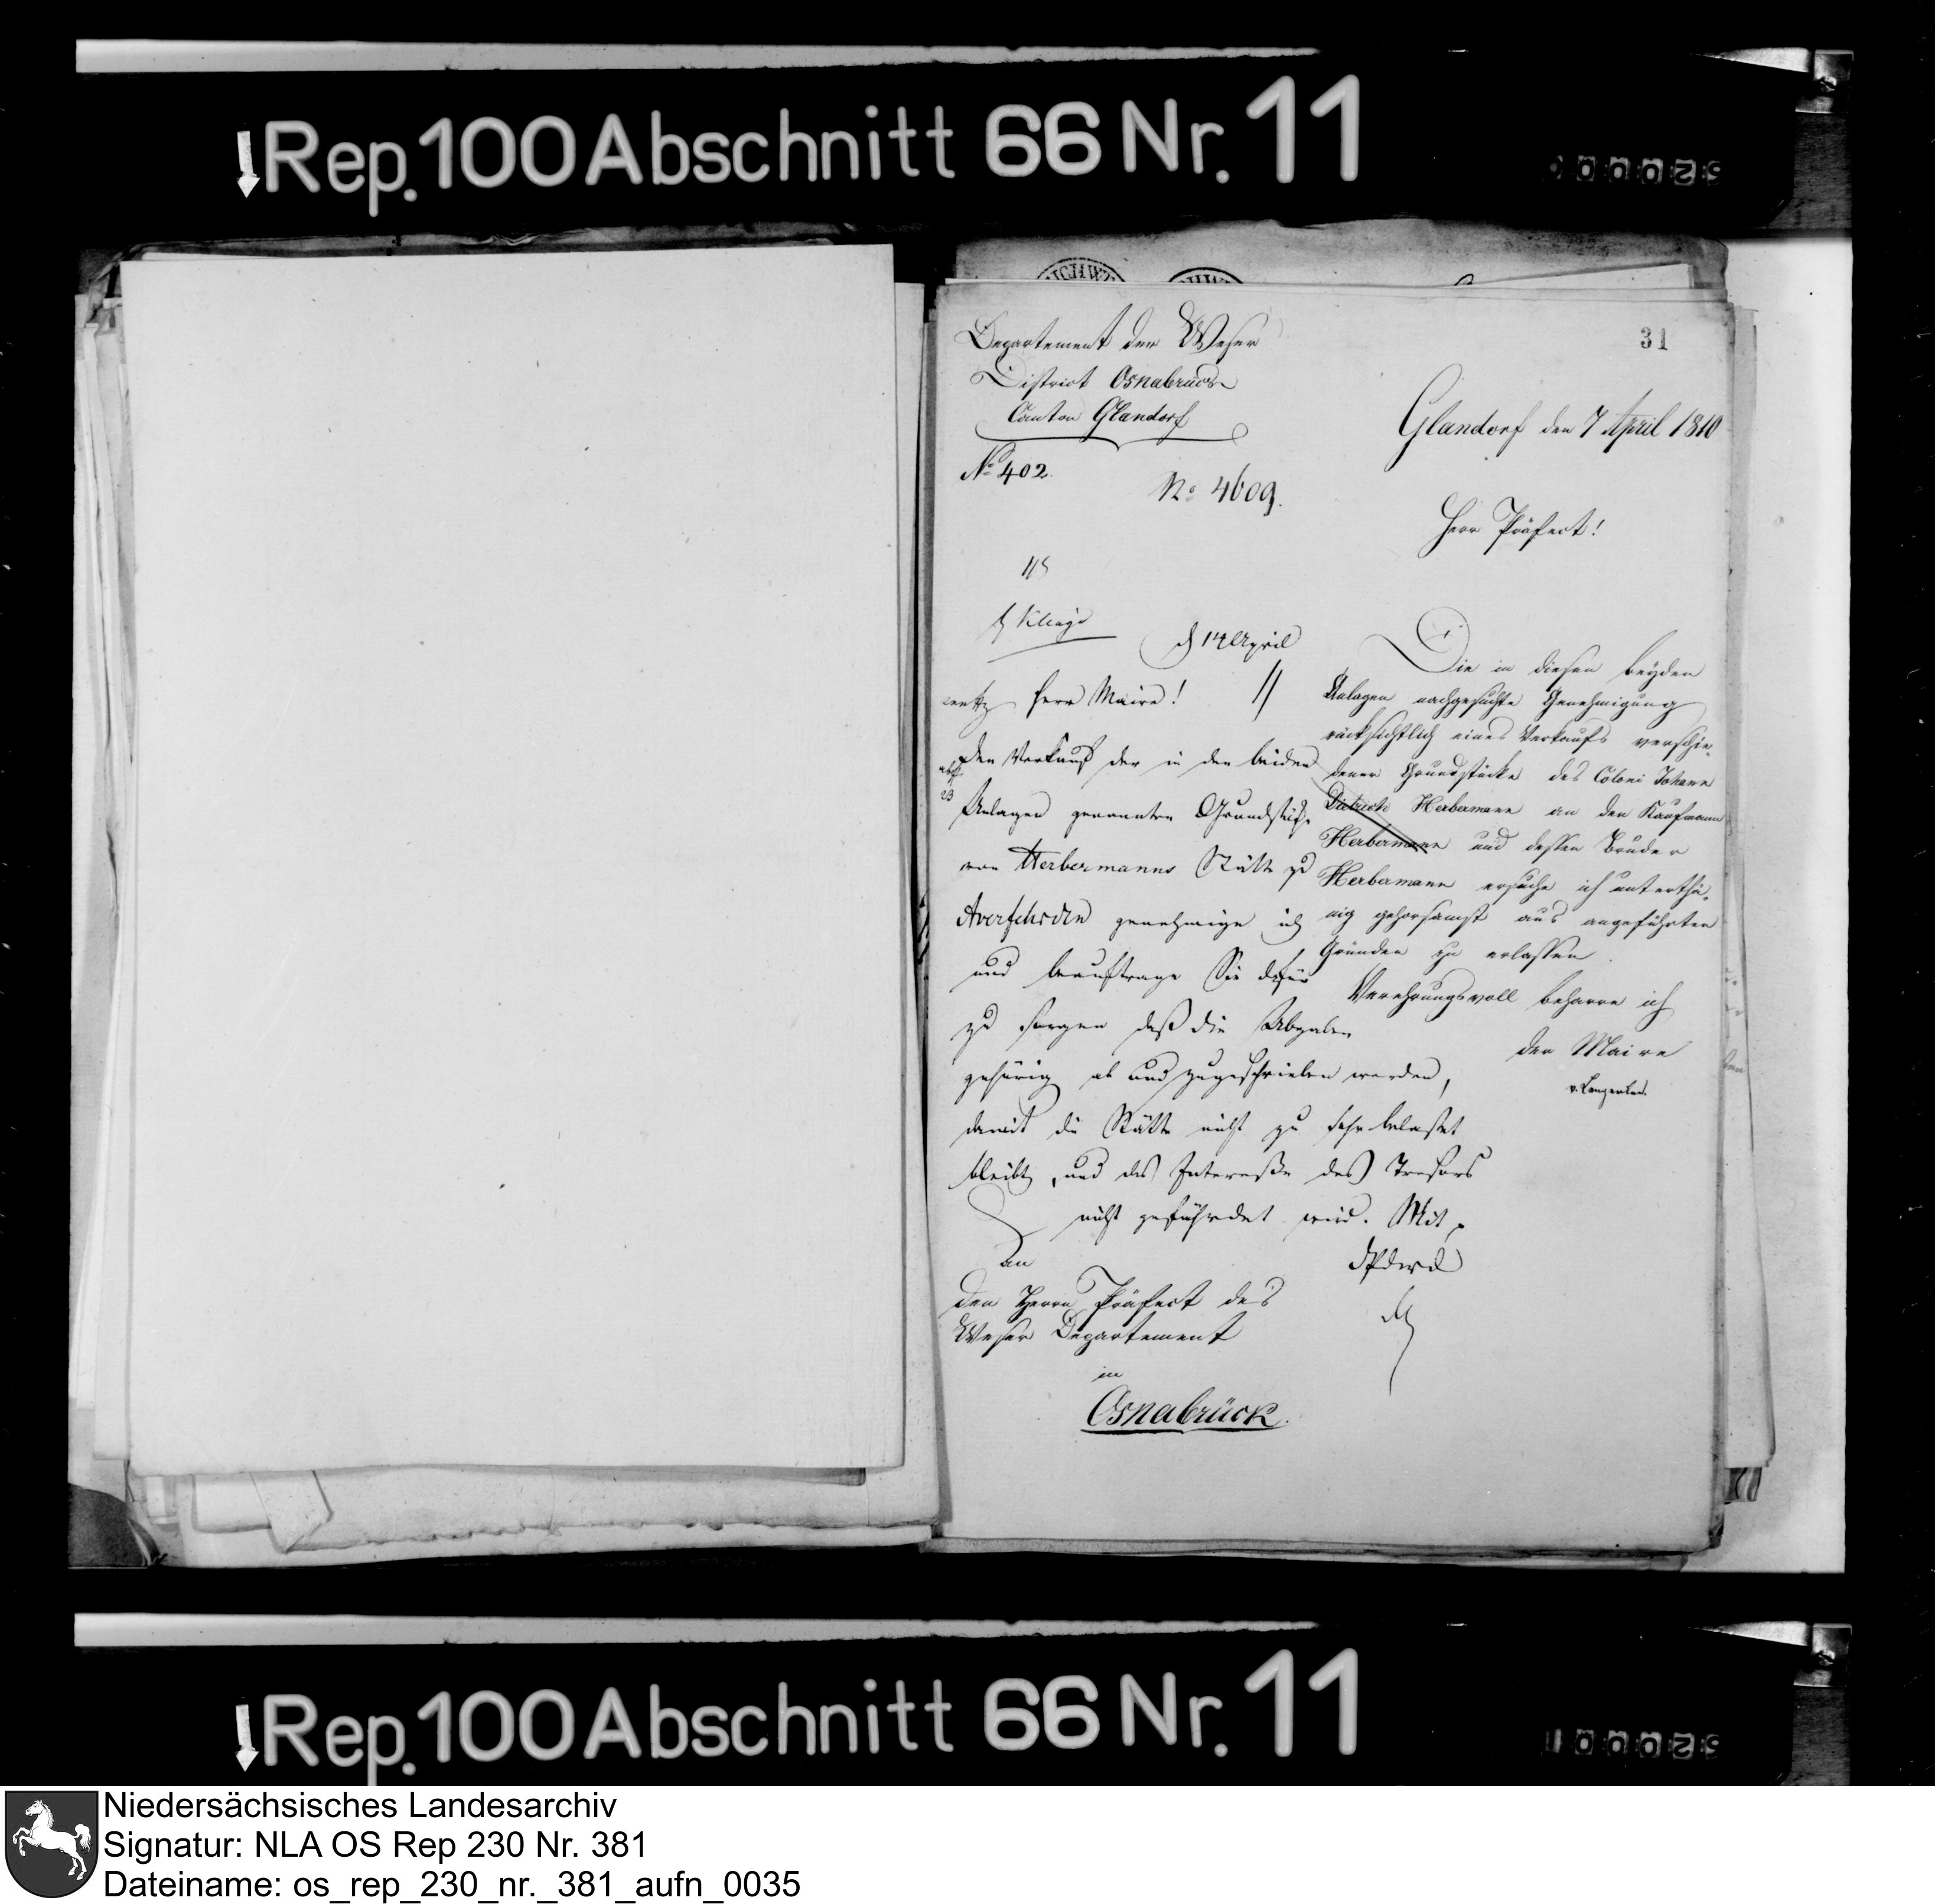 Rep. 100 Abschnitt 66 Nr. 11
31
Departement der Weser
District Osnabrück
Canton Glandorf
No 402.
No 4609.
Glandorf den 7 April 1810
Herr Präfect!
Die in diesen beyden
Anlagen nachgesuchte Genehmigung
rücksichtlich eines Verkaufs verschie-
dener Grundstücke des Coloni Johann
Dietrich Herbermann an den Kaufmann
Herbermann und dessen Bruder
Herbermann ersuche ich unterthä-
nig gehorsamst aus angeführten
Gründen zu erlassen.
Verehrungsvoll beharre ich
der Maire
d 14 April
Herr Maire!
Den Verkauf der in den beiden
Anlagen genannten Grundstücke
von Herbermanns Stätte zu
Averfehrden genehmige ich
und beauftrage Sie dafür
zu sorgen daß die Abgaben
gehörig ab und zugeschrieben werden,
damit die Stätte nicht zu sehr belastet
bleibt, und das Interesse des Tresors
nicht gefährdet wird. Mit
An
den Herrn Präfect des
Weser Departement
in
Osnabrück.
Rep. 100 Abschnitt 66 Nr. 11
Niedersächsisches Landesarchiv
Signatur: NLA OS Rep 230 Nr. 381
Dateiname: os_rep_230_nr._381_aufn_0035